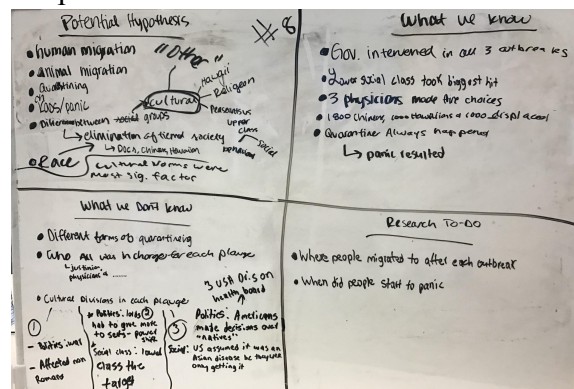 Potential Hypothesis
#8
• human migration
"Other"
• animal migration
• Quarantining
Hawaii
• Laos/panic
cultural
Religion
• Different between social groups
upper class
social
↳ elimination of
society
↳ Docs, Chinese, Hawaiian
• Race
cultural norms were
most sig. factor
What we know
• Gov. intervened in all 3 outbreaks
• Lower social class took biggest hit
• 3 physicians made five choices
• 1800 Chinese, 1000 Hawaiians & 1000 displaced
• Quarantine Always happened
↳ panic resulted
What we Don't know
• Different forms of quarantineing
• Who All was in charge for each plauge
↳ Justinian,
physicians &
• Cultural Divisions in each plauge
3 USA Drs. on
health board
①
- Politics: was
- Affected non
Romans
• Politics: lords ②
had to give more
to serfs - power
shift
• Social class: lower
class the
target
③
Politics: Americans
made decisions over
"natives"
Social: US assumed it was an
Asian disease bc they were
only getting it
Research To-Do
• Where people migrated to after each outbreak
• When did people start to panic